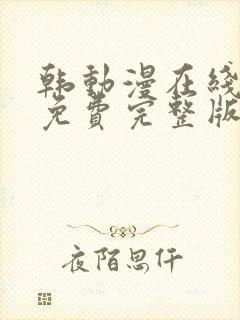 韩动漫在线
免费完整版
夜陌思仟